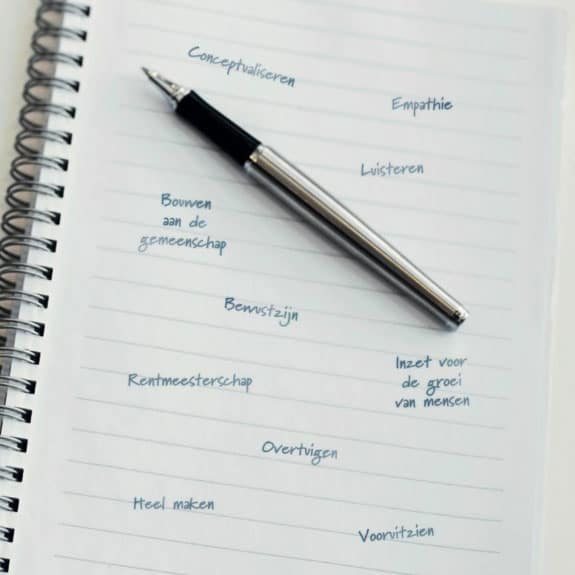 Conceptualiseren
Empathie
Luisteren
Bouwen
aan de
gemeenschap
Bewustzijn
Inzet voor
de groei
van mensen
Rentmeesterschap
Overtuigen
Heel maken
Vooruitzien